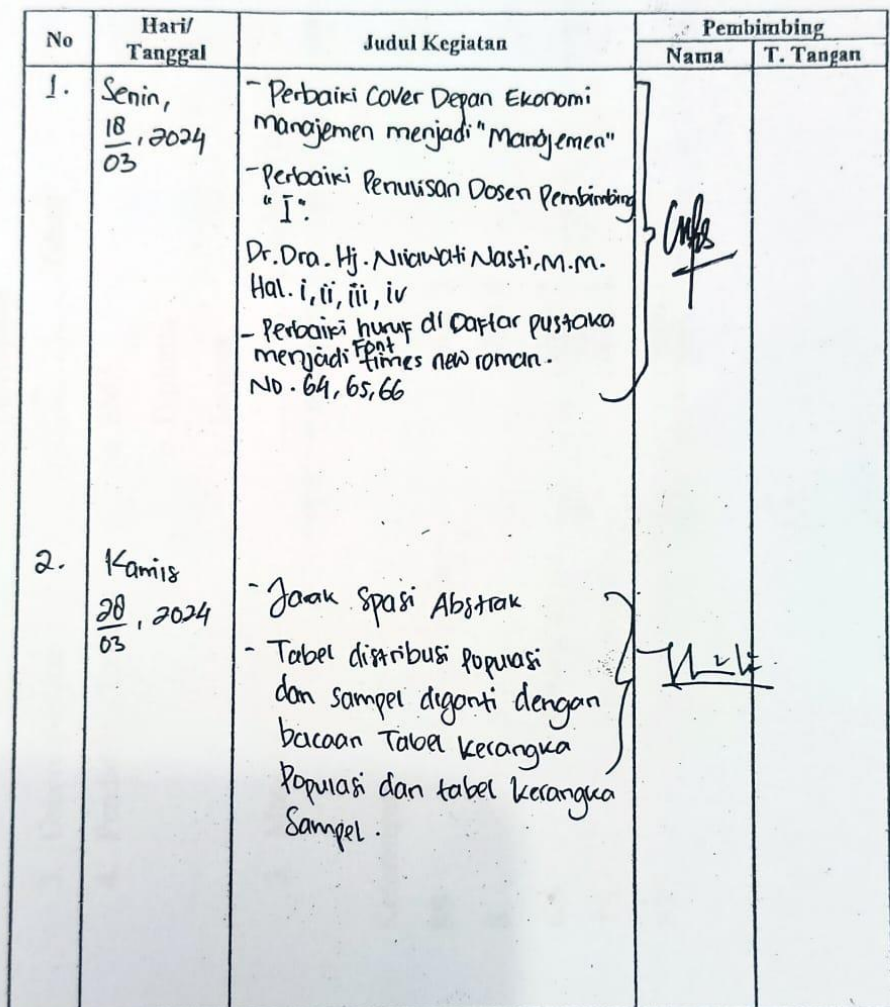 No Hari/ Tanggal Judul Kegiatan Pembimbing
Nama T. Tangan
1. Senin,
18/03, 2024
- Perbaiki Cover Depan Ekonomi
Manajemen menjadi "Manajemen"
- Perbaiki Penulisan Dosen Pembimbing
"I".
Dr. Dra. Hj. Nilawati Nasti, M.M.
Hal. i, ii, iii, iv
- Perbaiki huruf di Daftar pustaka
menjadi Font times new roman.
No. 64, 65, 66
2. Kamis
28/03, 2024
- Jarak Spasi Abstrak
- Tabel distribusi Populasi
dan Sampel diganti dengan
bacaan Tabel Kerangka
Populasi dan tabel kerangka
Sampel.